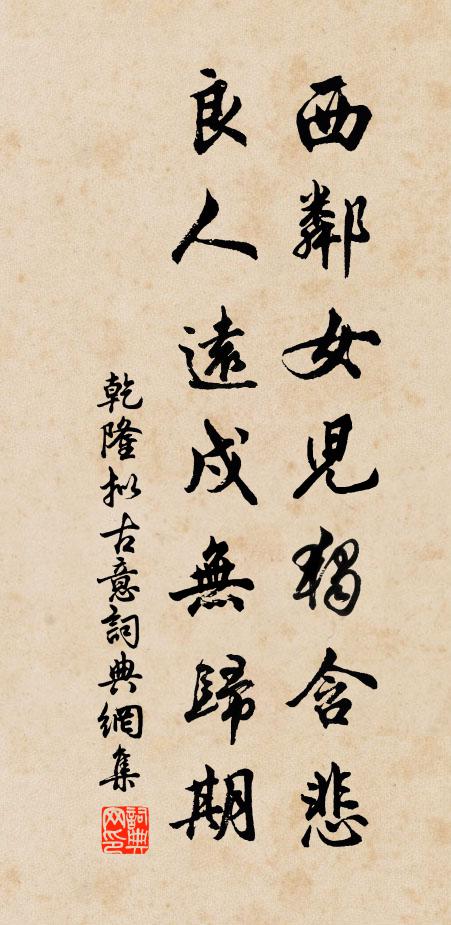 西鄰女兒獨含悲
良人遠戍無歸期
乾隆擬古意詞典網集
詞典網印